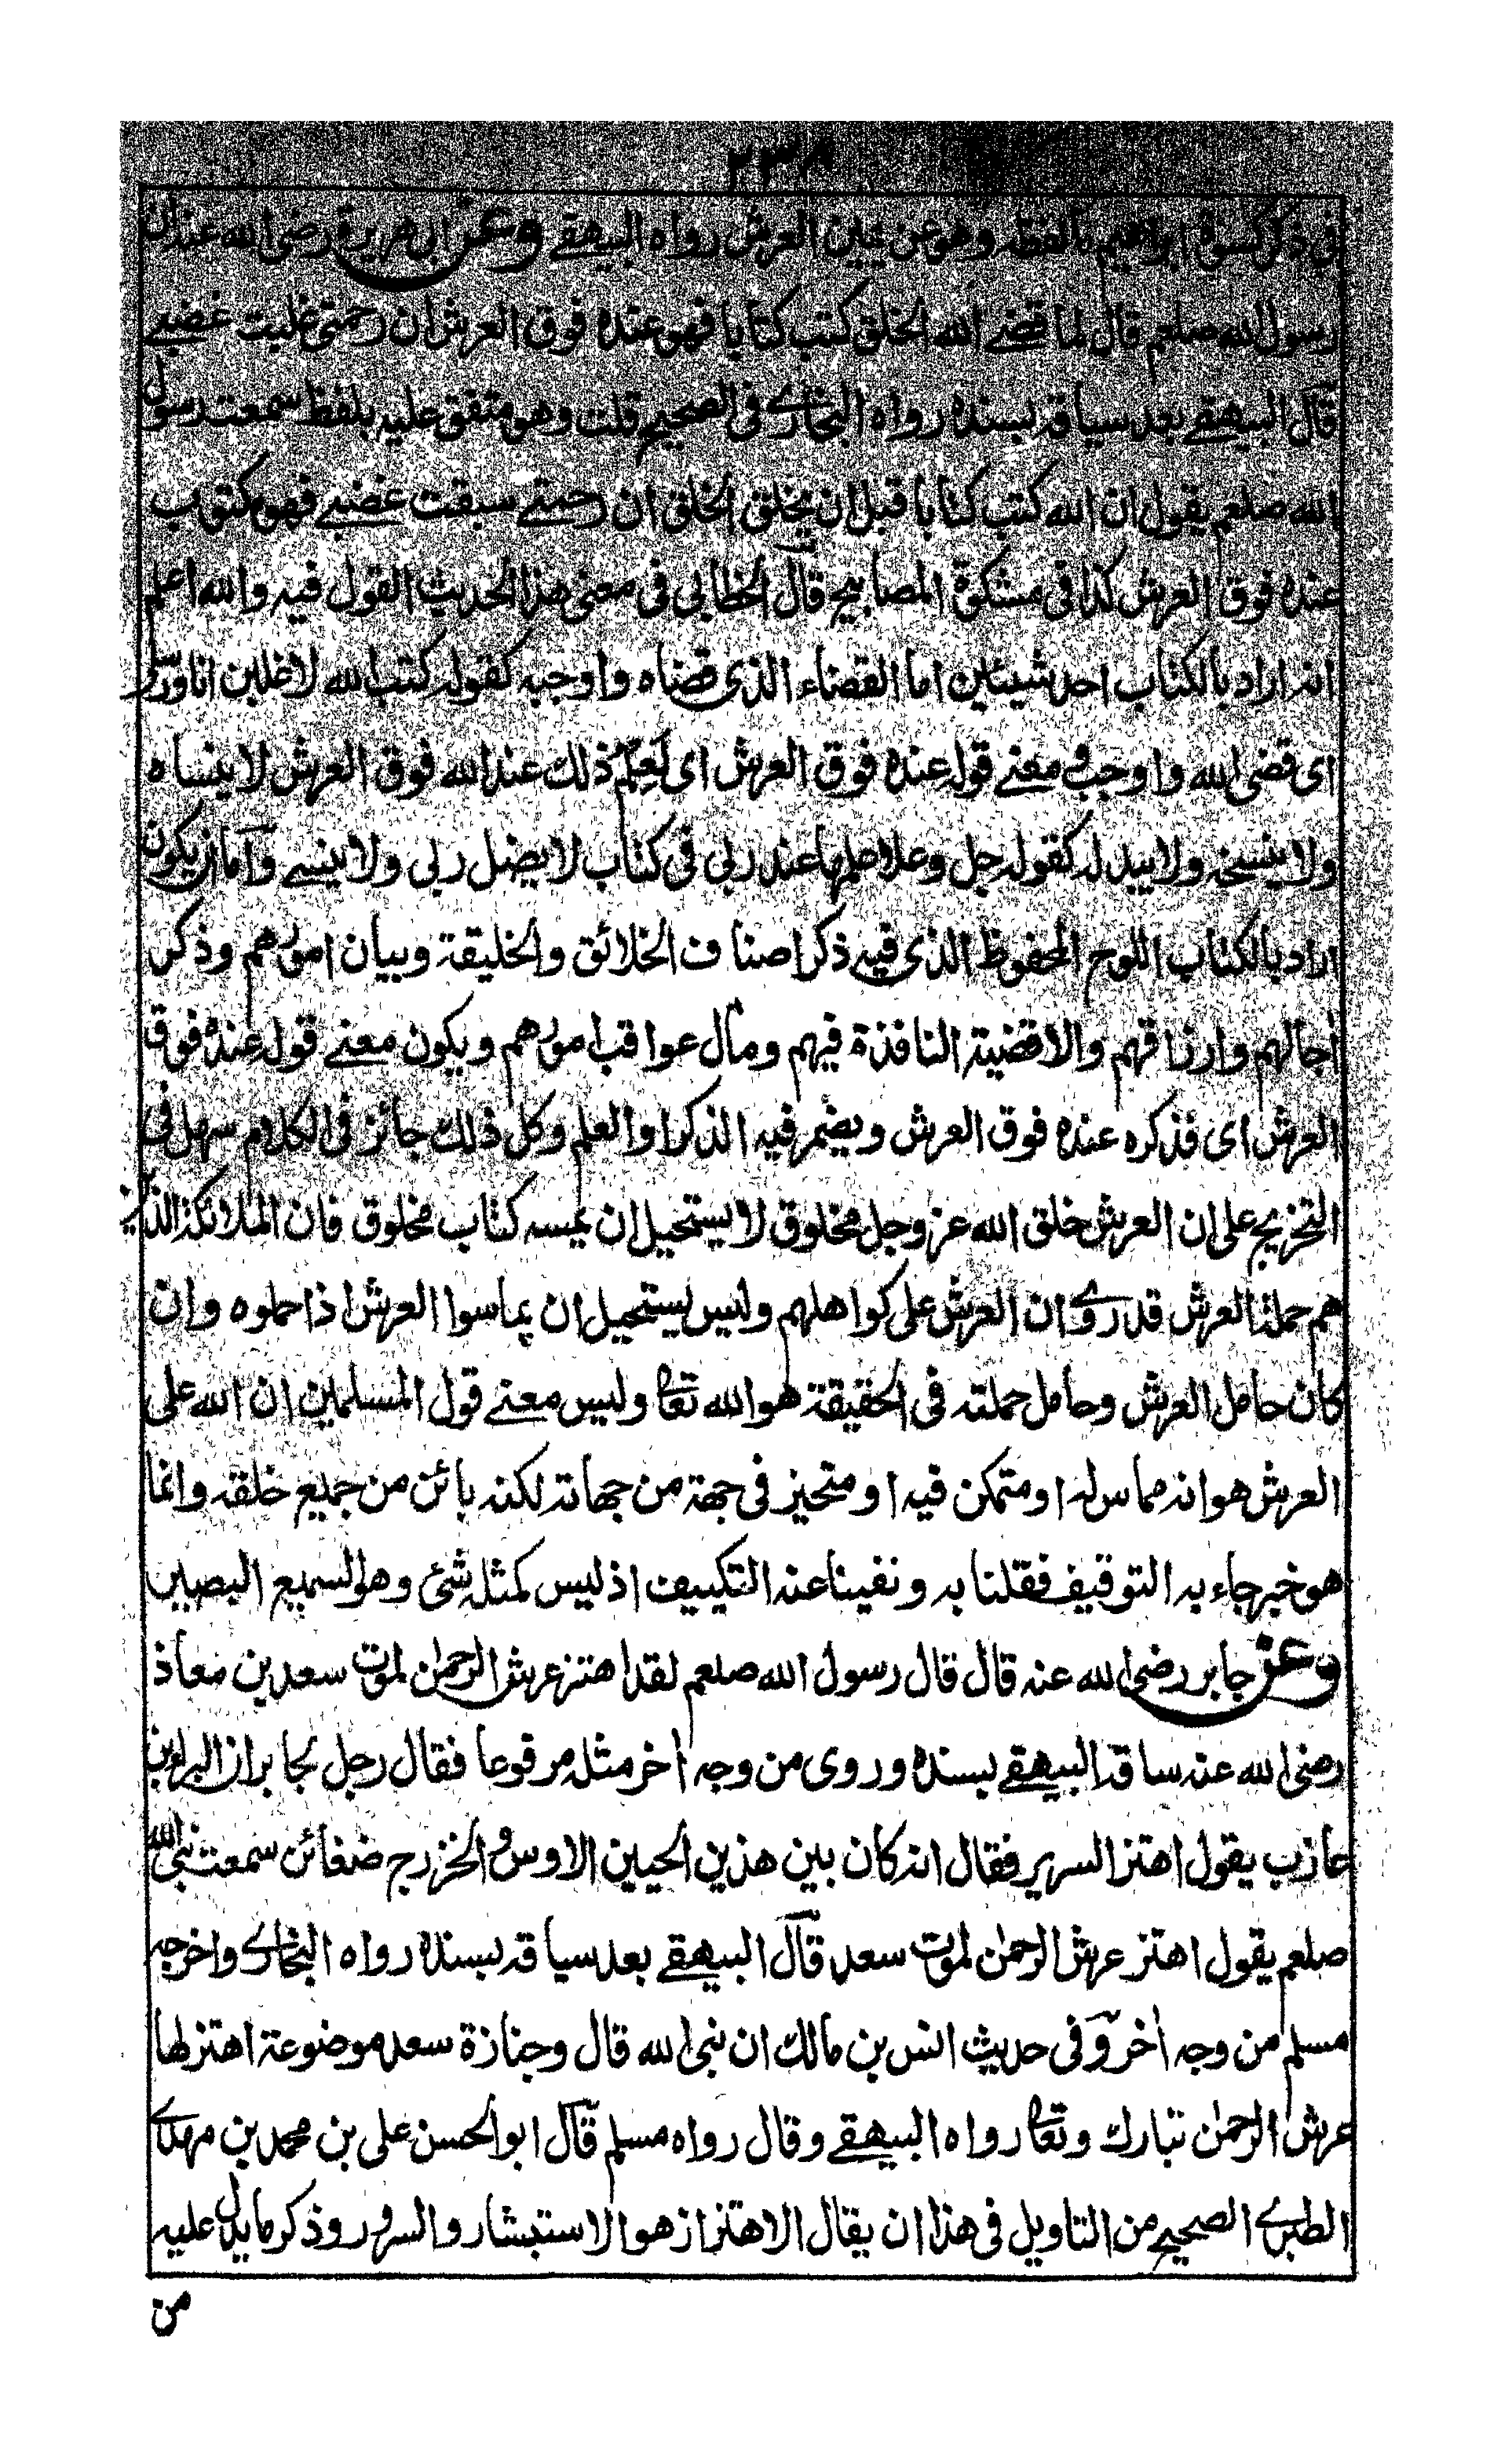 ٢٣٨
في ذكر كسوة ابراهيم بالفظه وهو عن يمين العرش رواه البيهقے وعن ابى هريرة رضى الله عنه ان
رسول الله صلعم قال لما قضے الله الخلق كتب كتابا فهو عنده فوق العرش ان رحمتى غلبت غضبے
قال البيهقے بعد سياقه بسنده رواه البخارے فى الصحيح قلت وهو متفق عليه بلفظ سمعت رسول
الله صلعم يقول ان الله كتب كتابا قبل ان يخلق الخلق ان رحمتے سبقت غضبے فهو مكتوب
عنده فوق العرش كذا فى مشكوة المصابيح قال الخطابى فى معنى هذا الحديث القول فيه والله اعلم
انه اراد بالكتاب احد شيئين اما القضاء الذى قضاه واوجبه كقوله كتب الله لاغلبن انا ورسلى
اى قضى الله واوجب فى معنے قوله عنده فوق العرش اى فعلم ذلك عند الله فوق العرش لا ينساه
ولا ينسخه ولا يبدله كقوله جل وعلا علمها عند ربى فى كتاب لا يضل ربى ولا ينسے واما ان يكون
اراد بالكتاب اللوح المحفوظ الذى فيه ذكر اصناف الخلائق والخليقة وبيان امورهم وذكر
اجالهم وارزاقهم والاقضية النافذة فيهم ومآل عواقب امورهم ويكون معنے قوله عنده فوق
العرش اى فذكره عنده فوق العرش ويضمر فيه الذكر او العلم وكل ذلك جائز فى الكلام سهل فى
التخريج على ان العرش خلق الله عز وجل مخلوق لا يستحيل ان يمسه كتاب مخلوق فان الملائكة الذين
هم حملة العرش قد روے ان العرش على كواهلهم وليس يستحيل ان يماسوا العرش اذا حملوه وان
كان حامل العرش وحامل حملته فى الحقيقة هو الله تعا وليس معنے قول المسلمين ان الله على
العرش هو انه مماس له او متمكن فيه او متحيز فى جهة من جهاته لكنه بائن من جميع خلقه وانما
هو خبر جاء به التوقيف فقلنا به ونفينا عنه التكييف اذ ليس كمثله شئ وهو السميع البصير
وعن جابر رضى الله عنه قال قال رسول الله صلعم لقد اهتز عرش الرحمن لموت سعد بن معاذ
رضى الله عنه ساقه البيهقے بسنده وروى من وجه اخر مثله مرفوعا فقال رجل لجابر ان البراء بن
عازب يقول اهتز السرير فقال انه كان بين هذين الحيين الاوس والخزرج ضغائن سمعت نبى الله
صلعم يقول اهتز عرش الرحمن لموت سعد قال البيهقے بعد سياقه بسنده رواه البخارے واخرجه
مسلم من وجه اخر وفى حديث انس بن مالك ان نبى الله قال وجنازة سعد موضوعة اهتز لها
عرش الرحمن تبارك وتعا رواه البيهقے وقال رواه مسلم قال ابو الحسن على بن محمد بن مهدے
الطبرے الصحيح من التاويل فى هذا ان يقال الاهتزاز هو الاستبشار والسرور وذكر ما يدل عليه
من